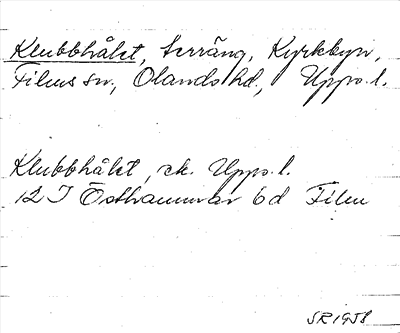 Klubbhålet, terräng, Kyrkbyn,
Films sn, Olands hd, Upps. l.
Klubbhålet, ek. Upps. l.
12 I Östhammar 6d Film
SR 1958